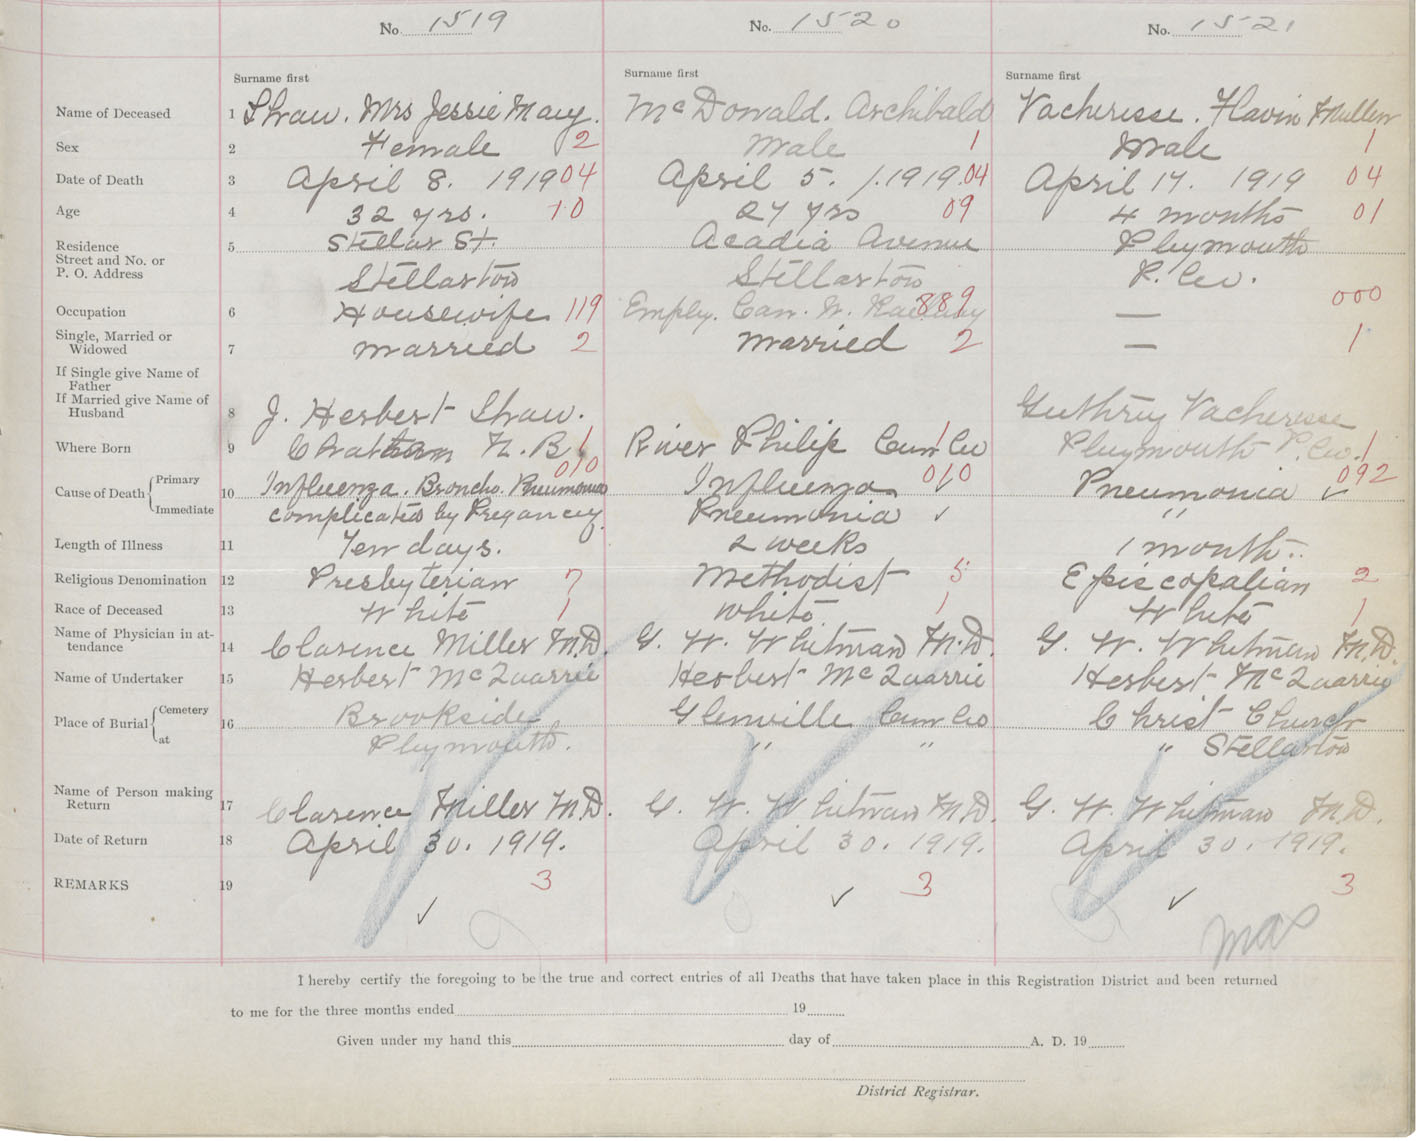 No. 1519 No. 1520 No. 1521
Surname first Surname first Surname first
Name of Deceased 1 Shaw. Mrs Jessie May. McDonald. Archibald Vacheresse. Flavin Mullen
Sex 2 Female 2 Male 1 Male 1
Date of Death 3 April 8. 1919 04 April 5. 1919. 04 April 17. 1919 04
Age 4 32 yrs. 10 27 yrs 09 4 months 01
Residence 5 Stellar St. Acadia Avenue Plymouth
Street and No. or
P. O. Address Stellarton Stellarton P. Co.
Occupation 6 Housewife 119 Employ. Can. N. Railway 889 — 000
Single, Married or
Widowed 7 married 2 married 2 — 1
If Single give Name of
Father
If Married give Name of
Husband 8 J. Herbert Shaw. Guthrey Vacheresse
Where Born 9 Chatham N. B. 1 River Philip Cum Co 1 Plymouth P. Co. 1
Cause of Death { Primary 10 Influenza. Broncho. Pneumonia 010 Influenza 010 ✓ Pneumonia 092 ✓
Immediate complicated by Pregancy. Pneumonia ✓ "
Length of Illness 11 Ten days. 2 weeks 1 month..
Religious Denomination 12 Presbyterian 7 Methodist 5 Episcopalian 2
Race of Deceased 13 White 1 white 1 White 1
Name of Physician in at-
tendance 14 Clarence Miller M.D. G. W. Whitman M.D. G. W. Whitman M.D.
Name of Undertaker 15 Herbert McQuarrie Herbert McQuarrie Herbert McQuarrie
Place of Burial { Cemetery 16 Brookside Glenville Cum Co Christ Church
at Plymouth. " " " Stellarton
Name of Person making
Return 17 Clarence Miller M.D. G. W. Whitman M.D. G. W. Whitman M.D.
Date of Return 18 April 30. 1919. April 30. 1919. April 30. 1919.
REMARKS 19 3 ✓ 3 ✓ 3 ✓
I hereby certify the foregoing to be the true and correct entries of all Deaths that have taken place in this Registration District and been returned
to me for the three months ended 19
Given under my hand this day of A. D. 19
District Registrar.